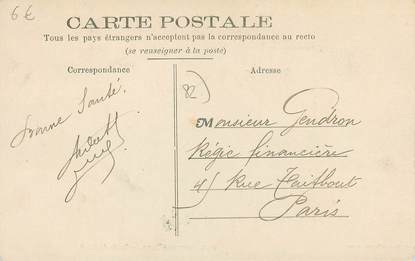 6€
CARTE POSTALE
Tous les pays étrangers n'acceptent pas la correspondance au recto
(se renseigner à la poste)
Correspondance
Adresse
82)
Bonne Santé.
Monsieur Gendron
Régie financière
Rue Taitbout
Paris